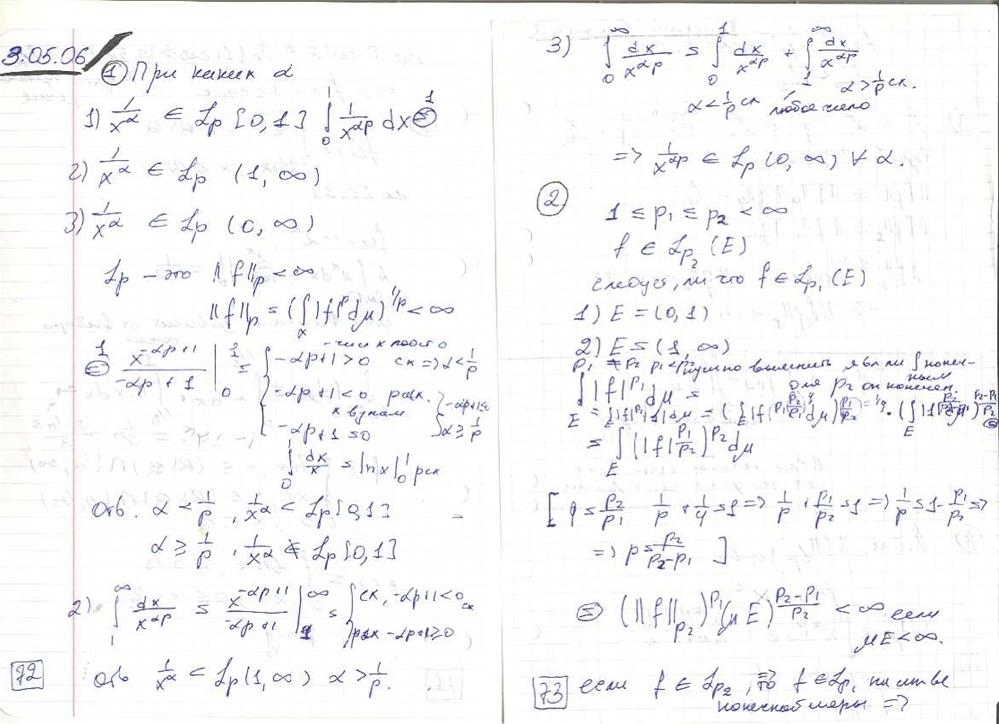 3.05.06
① При каких α
1) 1/x^α ∈ Lp [0,1] ∫₀¹ 1/x^{αp} dx ⊜ 1
2) 1/x^α ∈ Lp (1, ∞)
3) 1/x^α ∈ Lp (0, ∞)
Lp – это ||f||p < ∞
||f||p = (∫_X |f|^p dμ)^{1/p} < ∞
⊜ 1 x^{-αp+1}/(-αp+1) |₀¹ =
-αp+1 > 0 сх => α < 1/p
-αp+1 < 0 расх.
-αp+1 = 0
α ≥ 1/p
∫₀¹ dx/x = ln x |₀¹ рсх
Отв. α < 1/p, 1/x^α ∈ Lp[0,1]
α ≥ 1/p, 1/x^α ∉ Lp[0,1]
2) ∫₁^∞ dx/x^{αp} = x^{-αp+1}/(-αp+1) |₁^∞ = { сх, -αp+1<0 сх
расх -αp+1≥0
Отв 1/x^α ∈ Lp(1,∞) α > 1/p.
72
3) ∫₀^∞ dx/x^{αp} = ∫₀¹ dx/x^{αp} + ∫₁^∞ dx/x^{αp}
α < 1/p сх α > 1/p сх.
любое число
=> 1/x^{αp} ∈ Lp (0, ∞) ∀ α.
②
1 ≤ p₁ ≤ p₂ < ∞
f ∈ L_{p₂} (E)
следует, ли что f ∈ L_{p₁} (E)
1) E = (0,1)
2) E = (1, ∞)
нужно выяснить явл ли ∫ конечным
∫_E |f|^{p₁} dμ =
для p₂ он конечен.
= ∫_E (|f|^{p₁/p₂})^{p₂} dμ
[ q = p₂/p₁ 1/p + 1/q = 1 => 1/p + p₁/p₂ = 1 => 1/p = 1 - p₁/p₂ =>
=> p = p₂/(p₂-p₁) ]
⊜ (||f||_{p₂})^{p₁} (μE)^{(p₂-p₁)/p₂} < ∞ если
μE < ∞.
73
если f ∈ L_{p₂}, => то f ∈ L_{p₁} на мн-ве
конечной меры =>